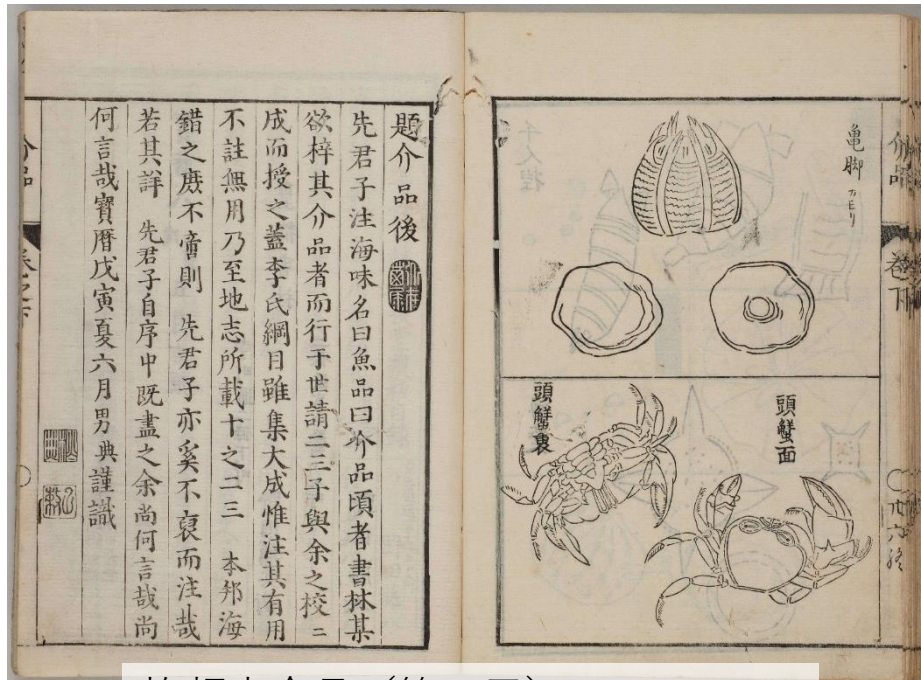 亀脚
頭蟹面
頭蟹裏
介品
卷下
題介品後
先君子注海味名曰魚品曰介品頃者書林某
欲梓其介品者而行于世請二三子與余之校二
成而授之蓋李氏綱目雖集大成惟注其有用
不註無用乃至地志所載十之二三 本邦海
錯之庶不啻則 先君子亦奚不裒而注哉
若其詳 先君子自序中既盡之余尚何言哉尚
何言哉寶暦戊寅夏六月男典謹識
介品